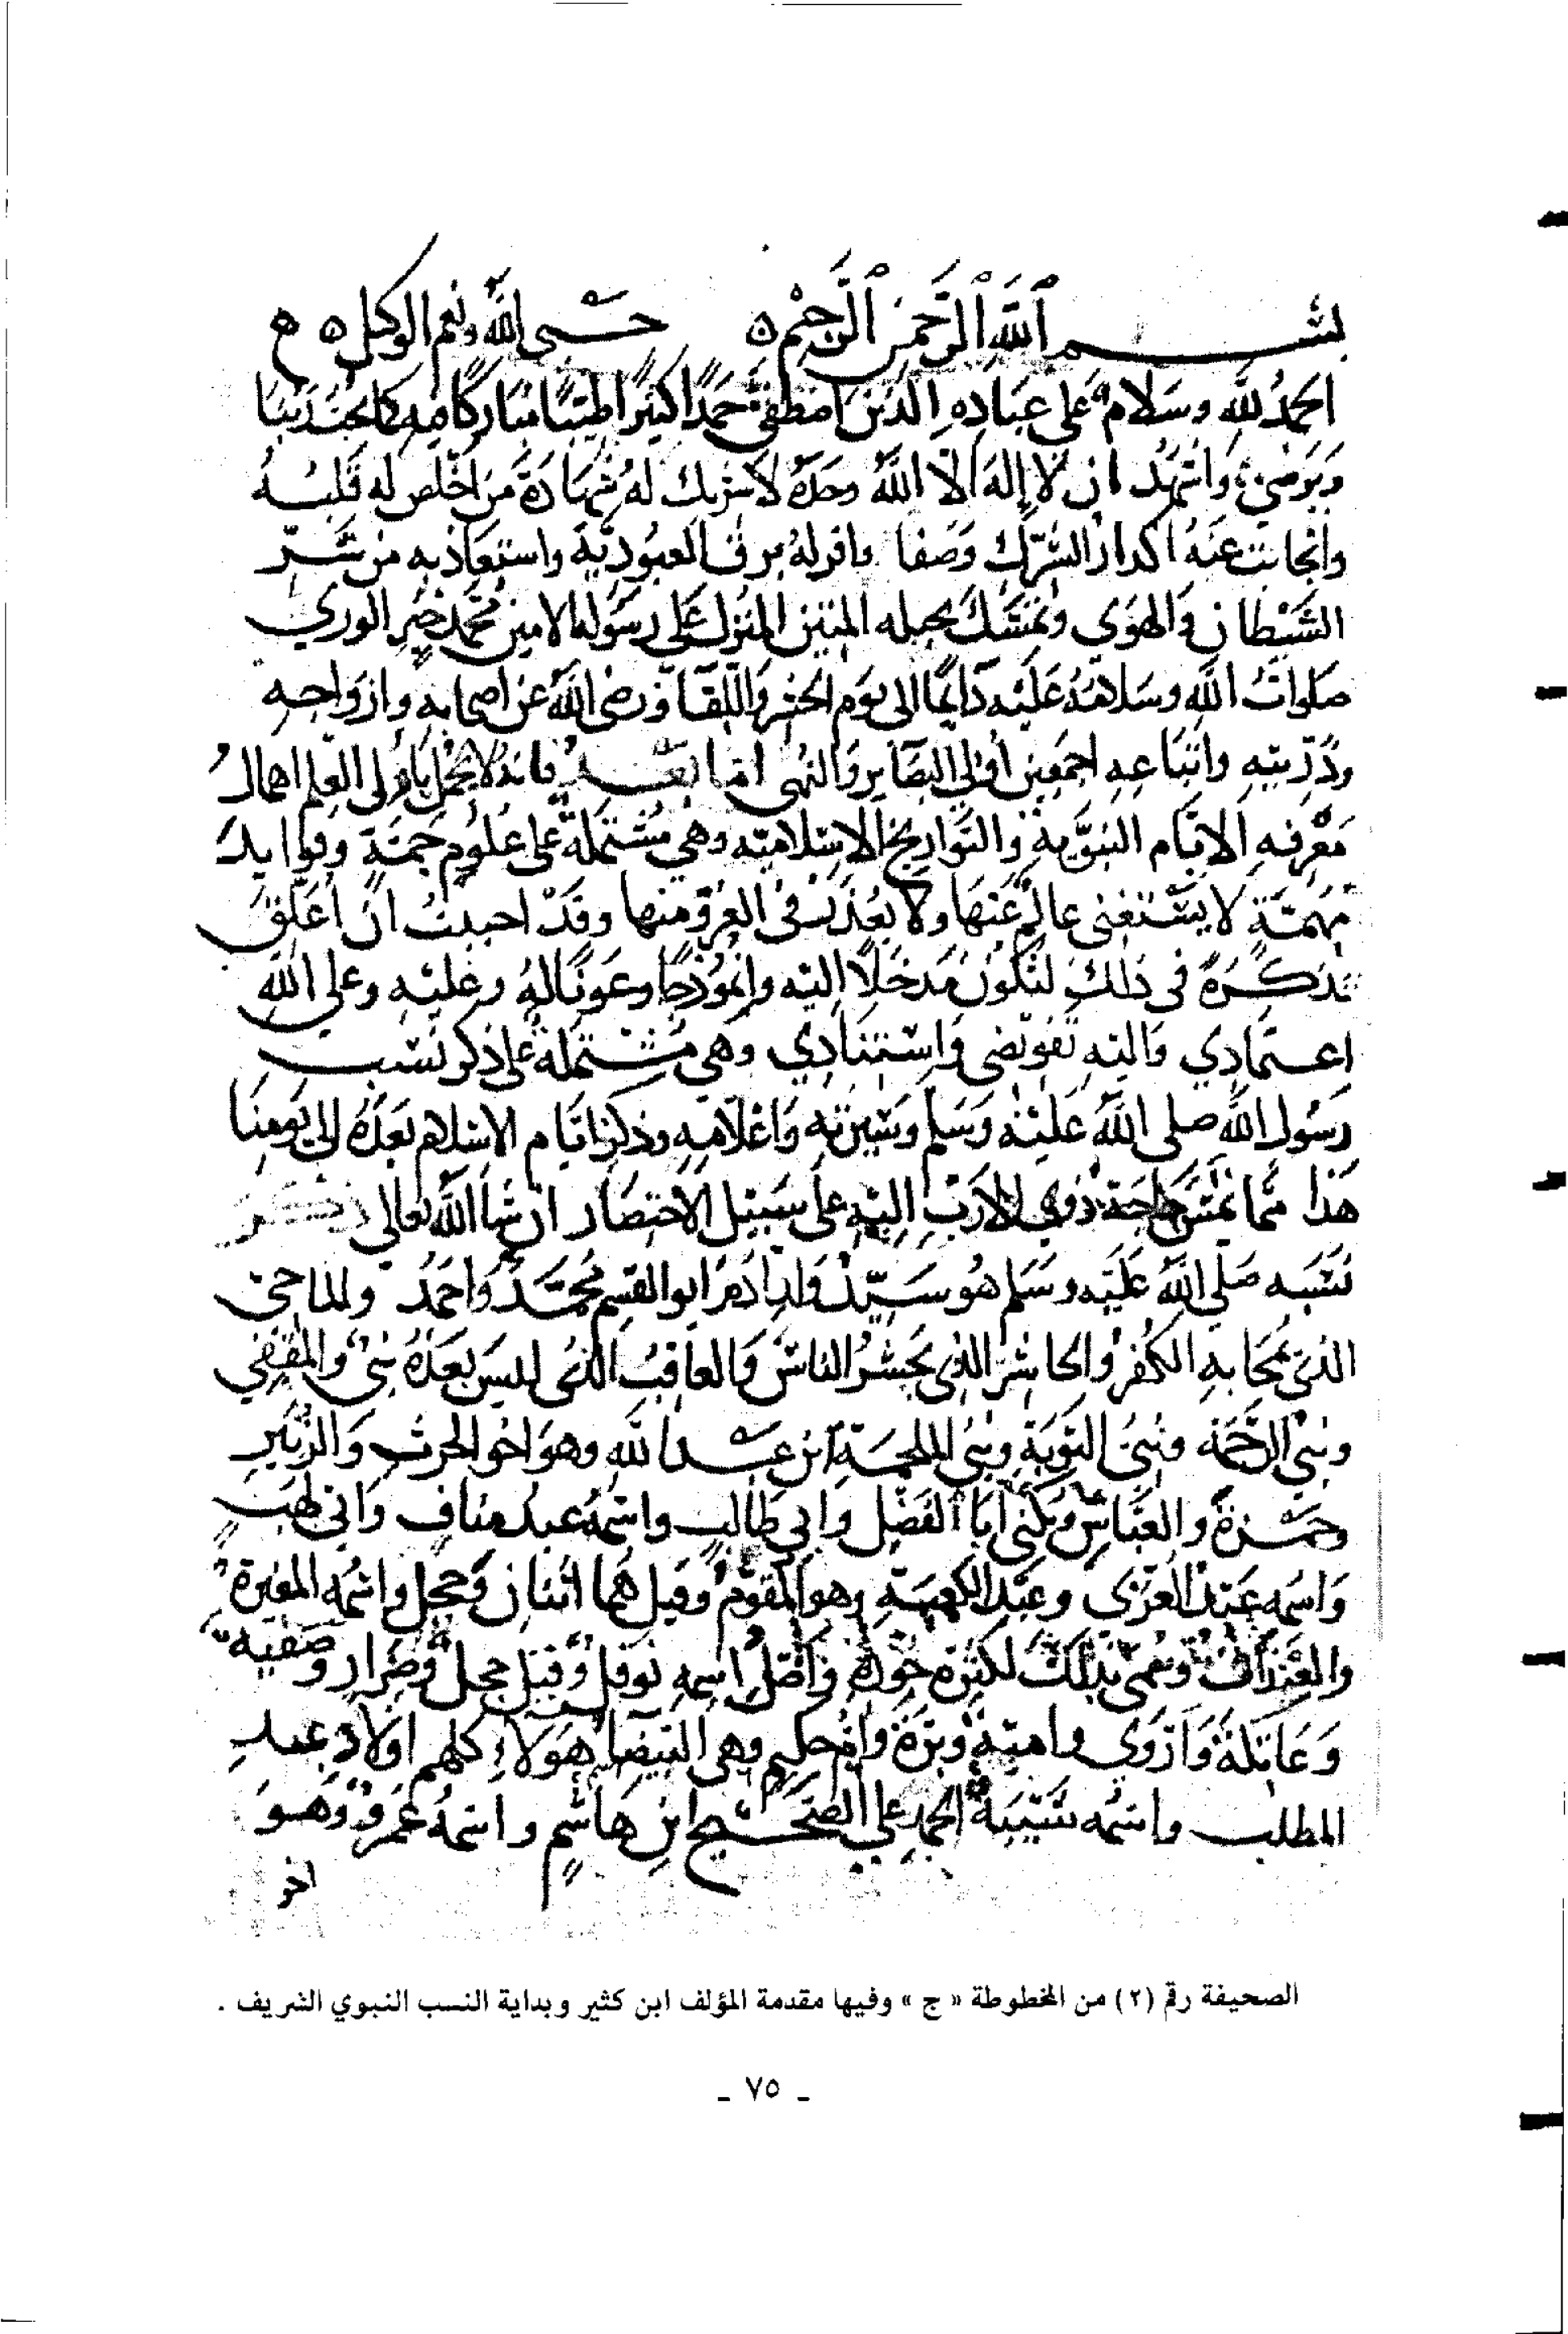 بسم الله الرحمن الرحيم ه حسبي الله ونعم الوكيل ه
الحمد لله وسلام على عباده الذين اصطفى حمدًا كثيرًا طيبًا مباركًا فيه كما يحب ربنا
ويرضى، وأشهد ان لا إله الا الله وحده لا شريك له شهادة من اخلص له قلبه
وانجابت عنه اكدار الشرك وصفا واقر له برق العبودية واستعاذ به من شر
الشيطان والهوي وتمسك بحبله المتين المنزل على رسوله الامين محمد خير الوري
صلوات الله وسلامه عليه دايمًا الى يوم الحشر واللقا ورضي الله عن اصحابه وازواجه
وذريته واتباعه اجمعين اولي البصاير والنهى اما بعد فانه لا يجمل باولى العلم اهمال
معرفه الايام النبوية والتواريخ الاسلاميه وهي مشتملة على علوم جمة وفوايد
مهمة لا يستغنى عالم عنها ولا يعذر في العرو منها وقد احببت ان اعلق
تذكرة في ذلك لتكون مدخلًا اليه وانموذجًا وعونًا له وعليه وعلي الله
اعتمادي واليه تفويضي واستنادي وهي مشتملة على ذكر نسب
رسول الله صلى الله عليه وسلم وسيرته واعلامه وذكر ايام الاسلام بعده الى يومنا
هذا مما تمس حاجة ذوي الارب اليه على سبيل الاختصار ان شا الله تعالى ذكر
نسبه صلي الله عليه وسلم هو سيد ولد ادم ابو القسم محمد واحمد والماحي
الذي يمحا به الكفر والحاشر الذي يحشر الناس والعاقب الذي ليس بعده نبي والمقفي
ونبي الرحمة ونبي التوبة ونبي الملحمة ابن عبد الله وهو اخو الحرث والزبير
وحمزة والعباس ويكنى ابا الفضل وابي طالب واسمه عبد مناف وابي لهب
واسمه عبد العزى وعبد الكعبة وهو المقوم وقيل هما اثنان وحجل واسمه المغيرة
والغيداق وسمي بذلك لكثرة جوده واصل اسمه نوفل وقيل حجل وضرار وصفيه
وعاتكة وأروى واميمة وبرة وام حكيم وهي البيضا هولاء كلهم اولاد عبد
المطلب واسمه شيبة الحمد على الصحيح ابن هاشم واسمه عمرو وهو
اخو
الصحيفة رقم (٢) من المخطوطة « ج » وفيها مقدمة المؤلف ابن كثير وبداية النسب النبوي الشريف .
ـ ٧٥ ـ